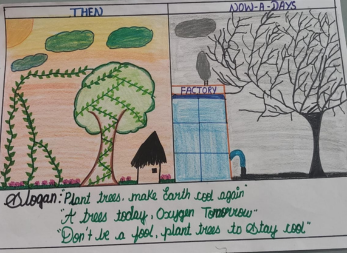 THEN
NOW-A-DAYS
FACTORY
Slogan: "Plant trees, make Earth cool again"
"A trees today, Oxygen Tomorrow"
"Don't be a fool, plant trees to stay cool"